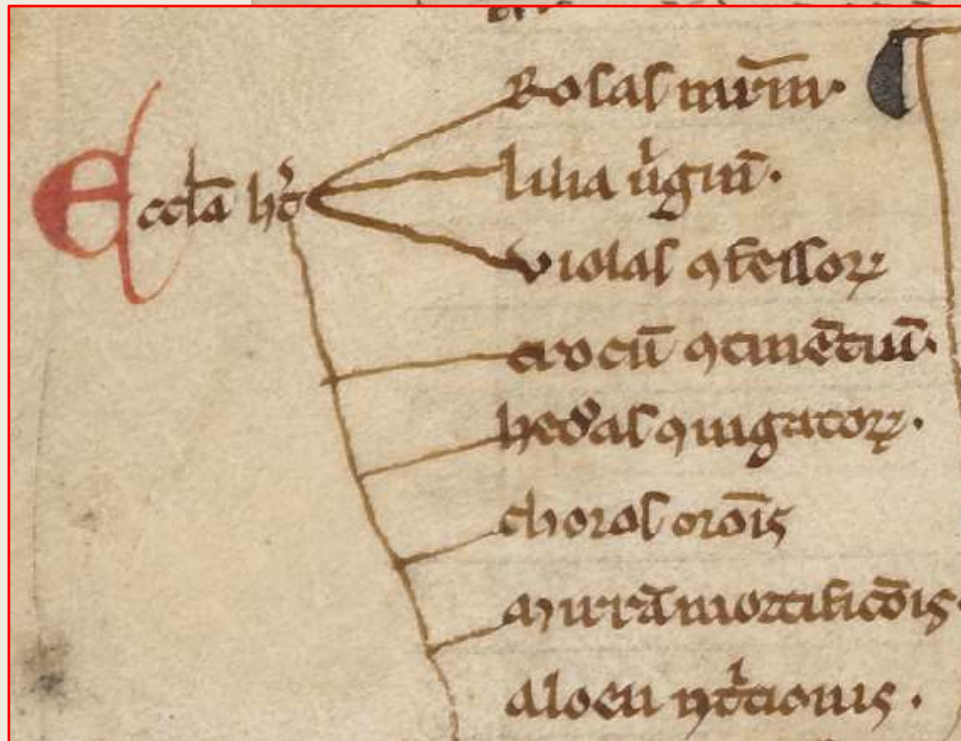 Eccl̄a h̄t
Rosas mr̄m·
lilia ụ̓gnū·
violas ꝯfessoꝝ
crocū ꝯtinētiū·
hed̓as ꝯiugatoꝝ·
choros oro̅is
mirrā mortificōis·
aloen ꝯt̓tionis·